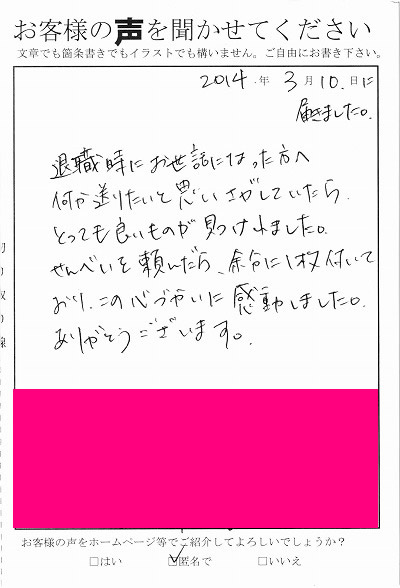 お客様の声を聞かせてください
文章でも箇条書きでもイラストでも構いません。ご自由にお書き下さい。
2014.年 3月10.日に
届きました。
退職時にお世話になった方へ
何か送りたいと思いさがしていたら、
とっても良いものが見つけれました。
せんべいを頼んだら、余分に1枚付いて
おり、この心づかいに感動しました。
ありがとうございます。
切り取り線
お客様の声をホームページ等でご紹介してよろしいでしょうか？
□はい ☑匿名で □いいえ